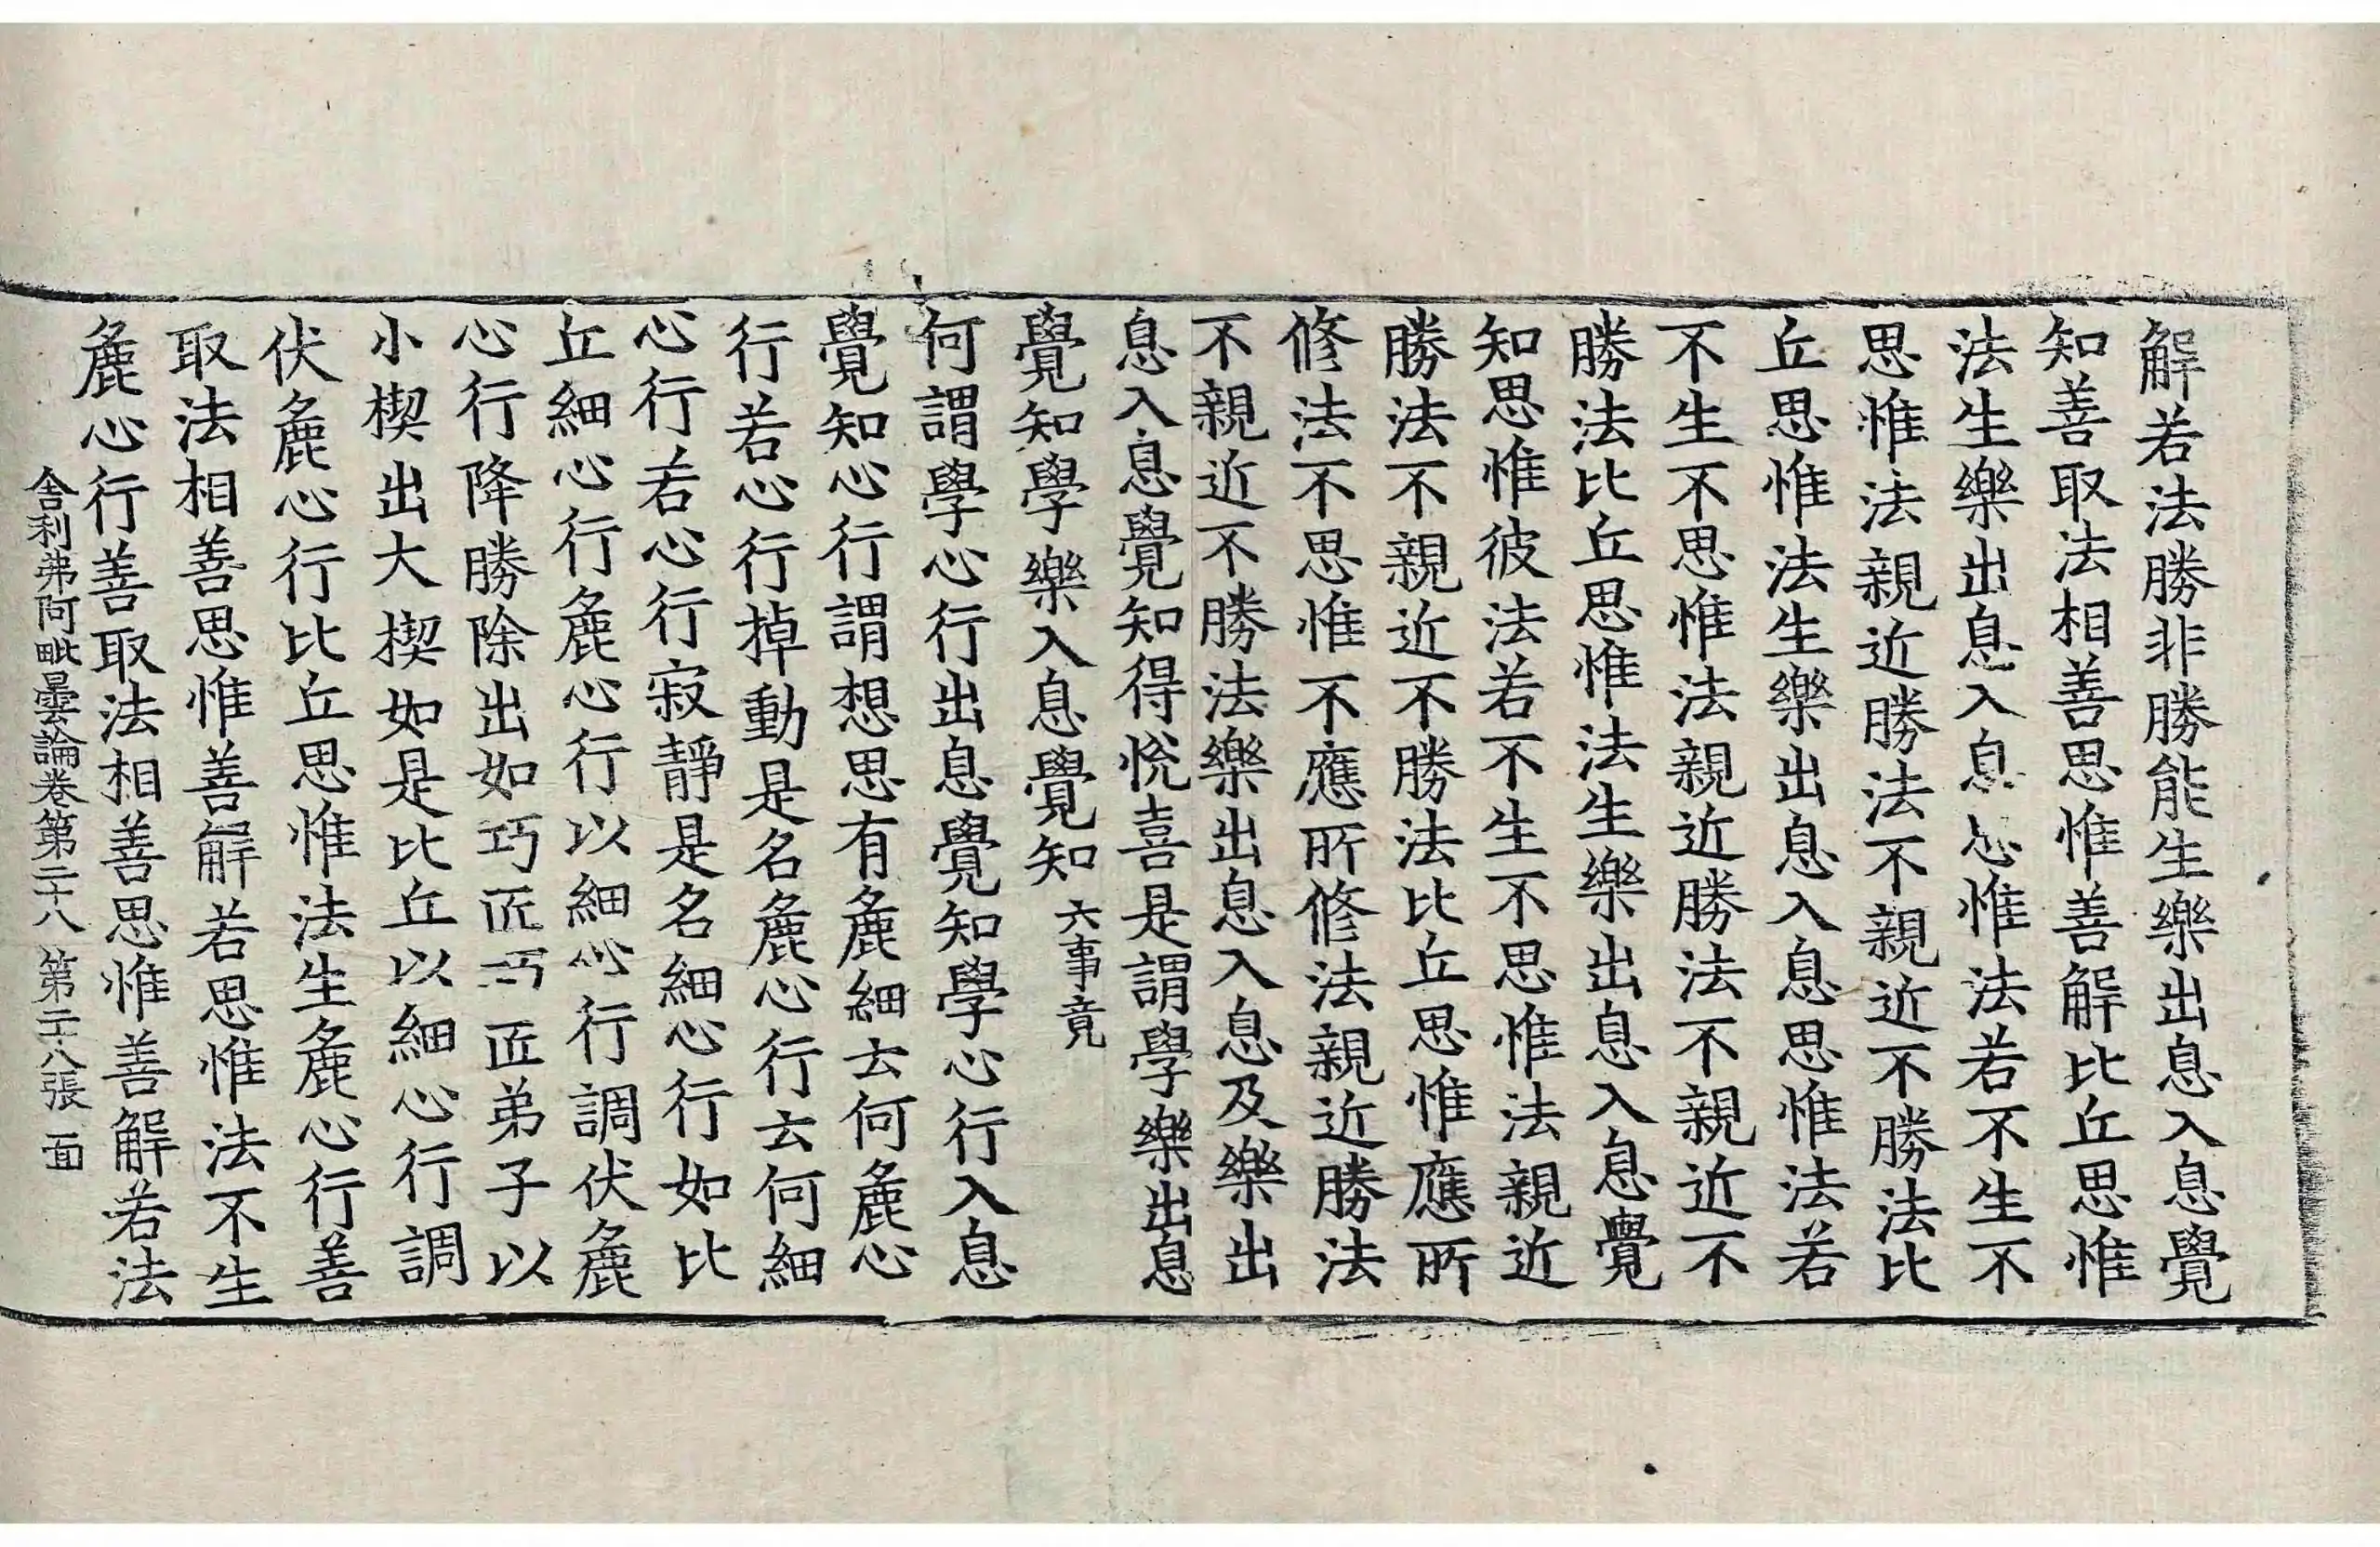 解若法勝非勝能生樂出息入息覺
知善取法相善思惟善解比丘思惟
法生樂出息入息思惟法若不生不
思惟法親近勝法不親近不勝法比
丘思惟法生樂出息入息思惟法若
不生不思惟法親近勝法不親近不
勝法比丘思惟法生樂出息入息覺
知思惟彼法若不生不思惟法親近
勝法不親近不勝法比丘思惟應所
修法不思惟不應所修法親近勝法
不親近不勝法樂出息入息及樂出
息入息覺知得悅喜是謂學樂出息
覺知學樂入息覺知六事竟
何謂學心行出息覺知學心行入息
覺知心行謂想思有麁細云何麁心
行若心行掉動是名麁心行云何細
心行若心行寂靜是名細心行如比
丘細心行麁心行以細心行調伏麁
心行降勝除出如巧匠巧匠弟子以
小楔出大楔如是比丘以細心行調
伏麁心行比丘思惟法生麁心行善
取法相善思惟善解若思惟法不生
麁心行善取法相善思惟善解若法
舍利弗阿毗曇論卷第二十八 第二十八張 面